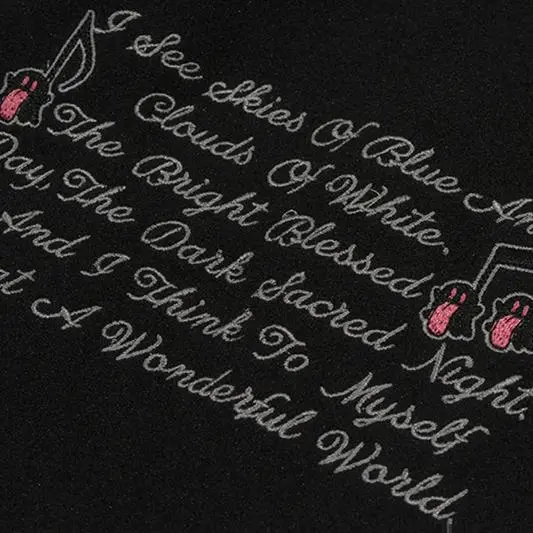 I See Skies Of Blue An
Clouds Of White.
The Bright Blessed
Day, The Dark Sacred Night.
And I Think To Myself
at A Wonderful World.